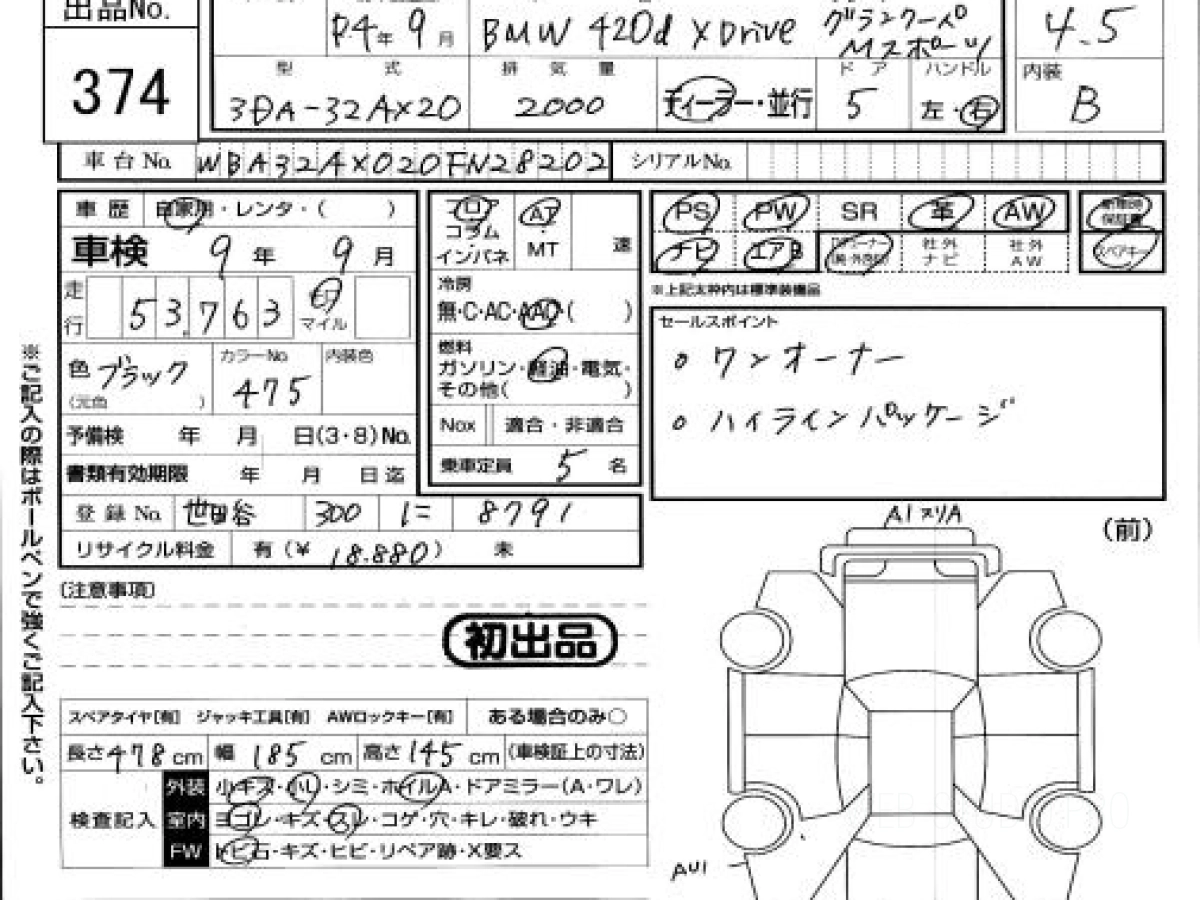 出品No.
R4年 9月 BMW 420d xDrive グランクーペ Mスポーツ 4.5
374
型 式 排 気 量 ドア ハンドル 内装
3DA-32AX20 2000 ディーラー・並行 5 左・右 B
車台No. WBA32AX020FN28202 シリアルNo.
車歴 自家用・レンタ・( )
フロア コラム インパネ AT・MT 速
PS PW SR 革 AW 新車時保証書
車検 9年 9月
ナビ エアB 社外ナビ 社外AW スペアキー
※上記太枠内は標準装備品
走行 53,763 km マイル
冷房
無・C・AC・AAC・( )
セールスポイント
○ ワンオーナー
○ ハイラインパッケージ
色 ブラック カラーNo. 475 内装色
(元色 )
燃料
ガソリン・軽油・電気・
その他( )
予備検 年 月 日(3・8)No.
Nox 適合・非適合
書類有効期限 年 月 日迄
乗車定員 5 名
登録No. 世田谷 300 に 8791
リサイクル料金 有(¥ 18.880) 未
A1 スリA
(前)
[注意事項]
初出品
スペアタイヤ[有] ジャッキ工具[有] AWロックキー[有] ある場合のみ○
長さ478cm 幅 185 cm 高さ145cm (車検証上の寸法)
検査記入
外装 小キズ・小U・シミ・ホイルA・ドアミラー(A・ワレ)
室内 ヨゴレ・キズ・スレ・コゲ・穴・キレ・破れ・ウキ
FW トビ石・キズ・ヒビ・リペア跡・X要ス
AU1
※ご記入の際はボールペンで強くご記入下さい。